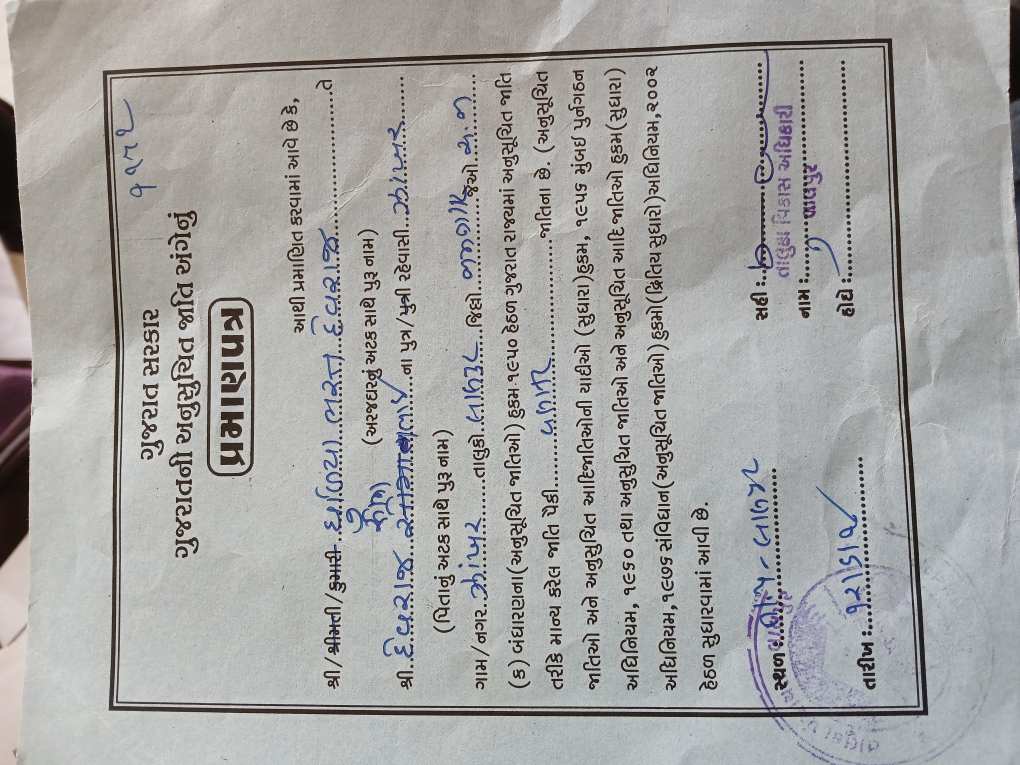 ૧૫૧૨
ગુજરાત સરકાર
ગુજરાતની અનુસુચિત જાતિ અંગેનું
પ્રમાણપત્ર
આથી પ્રમાણિત કરવામાં આવે છે કે,
શ્રી/શ્રીમતી/કુમારી ભરત દેવરાજ તે
(અરજદારનું અટક સાથે પુરૂ નામ)
શ્રી. દેવરાજ ના પુત્ર/પુત્રી રહેવાસી ઝાંખર
(પિતાનું અટક સાથે પુરૂ નામ)
ગામ/નગર ઝાંખર તાલુકો લાલપુર જિલ્લો જામનગર જેઓ
(ક) બંધારણના(અનુસુચિત જાતિઓ) હુકમ ૧૯૫૦ હેઠળ ગુજરાત રાજ્યમાં અનુસુચિત જાતિ
તરીકે માન્ય કરેલ જાતિ પૈકી વણકર જાતિના છે. (અનુસૂચિત
જાતિઓ અને અનુસુચિત આદિજાતિઓની યાદીઓ (સુધારા)હુકમ, ૧૯૫૬ મુંબઈ પુર્નગઠન
અધિનિયમ, ૧૯૬૦ તથા અનુસુચિત જાતિઓ અને અનુસૂચિત આદિ જાતિઓ હુકમ(સુધારા)
અધિનિયમ,૧૯૭૬ સંવિધાન(અનુસૂચિત જાતિઓ) હુકમો(દ્રિતિય સુધારો)અધિનિયમ,૨૦૦૨
હેઠળ સુધારવામાં આવી છે.
સ્થળ : લાલપુર
તારીખ :
સહી :
તાલુકા વિકાસ અધિકારી
નામ :
લાલપુર
હોદ્દો :